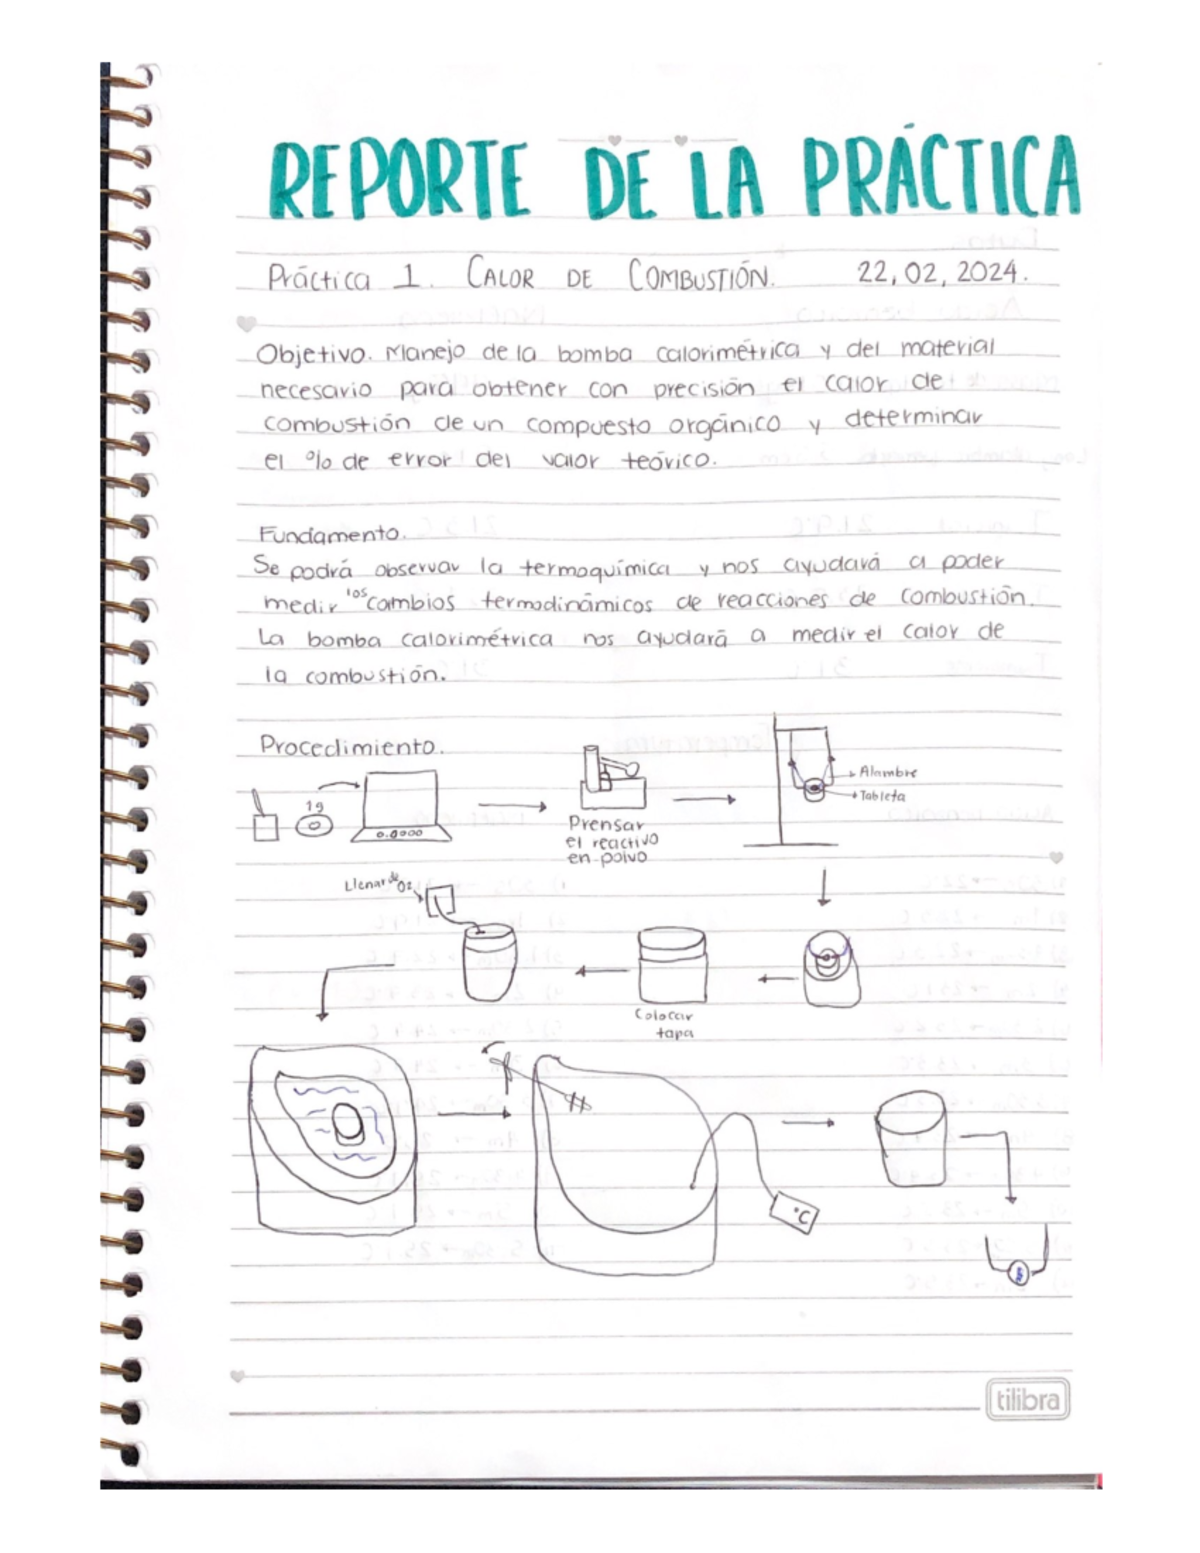 REPORTE DE LA PRÁCTICA
Práctica 1. CALOR DE COMBUSTIÓN. 22, 02, 2024.
Objetivo. Manejo de la bomba calorimétrica y del material
necesario para obtener con precisión el calor de
combustión de un compuesto orgánico y determinar
el % de error del valor teórico.
Fundamento.
Se podrá observar la termoquímica y nos ayudará a poder
medir los cambios termodinámicos de reacciones de combustión.
La bomba calorimétrica nos ayudará a medir el calor de
la combustión.
Procedimiento.
1g
0.0000
Prensar
el reactivo
en polvo
Alambre
Tableta
Llenar de O2
Colocar
tapa
°C
tilibra